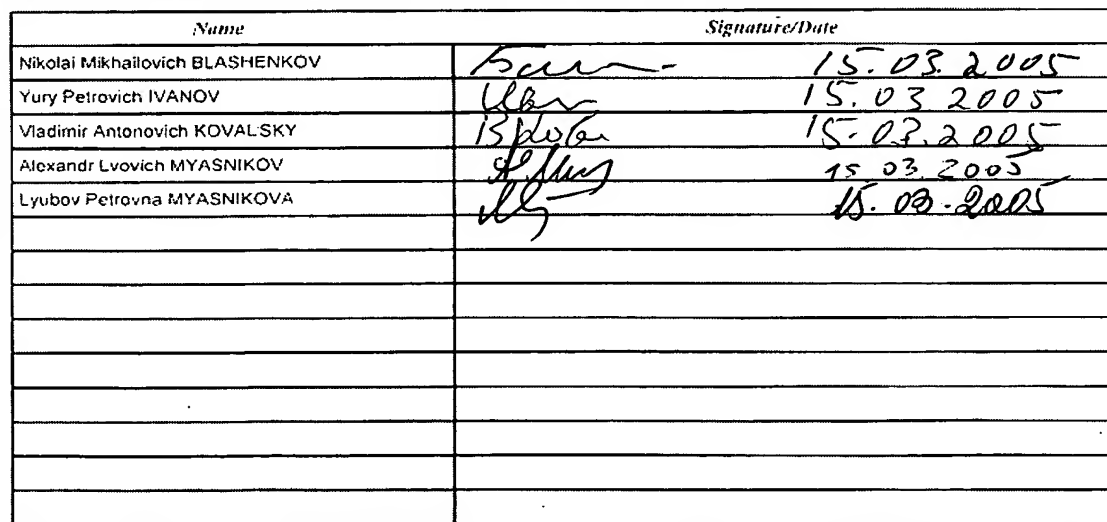 Name Signature/Date
Nikolai Mikhailovich BLASHENKOV 15.03.2005
Yury Petrovich IVANOV 15.03 2005
Vladimir Antonovich KOVALSKY 15.03.2005
Alexandr Lvovich MYASNIKOV 15 03. 2005
Lyubov Petrovna MYASNIKOVA 15.03.2005